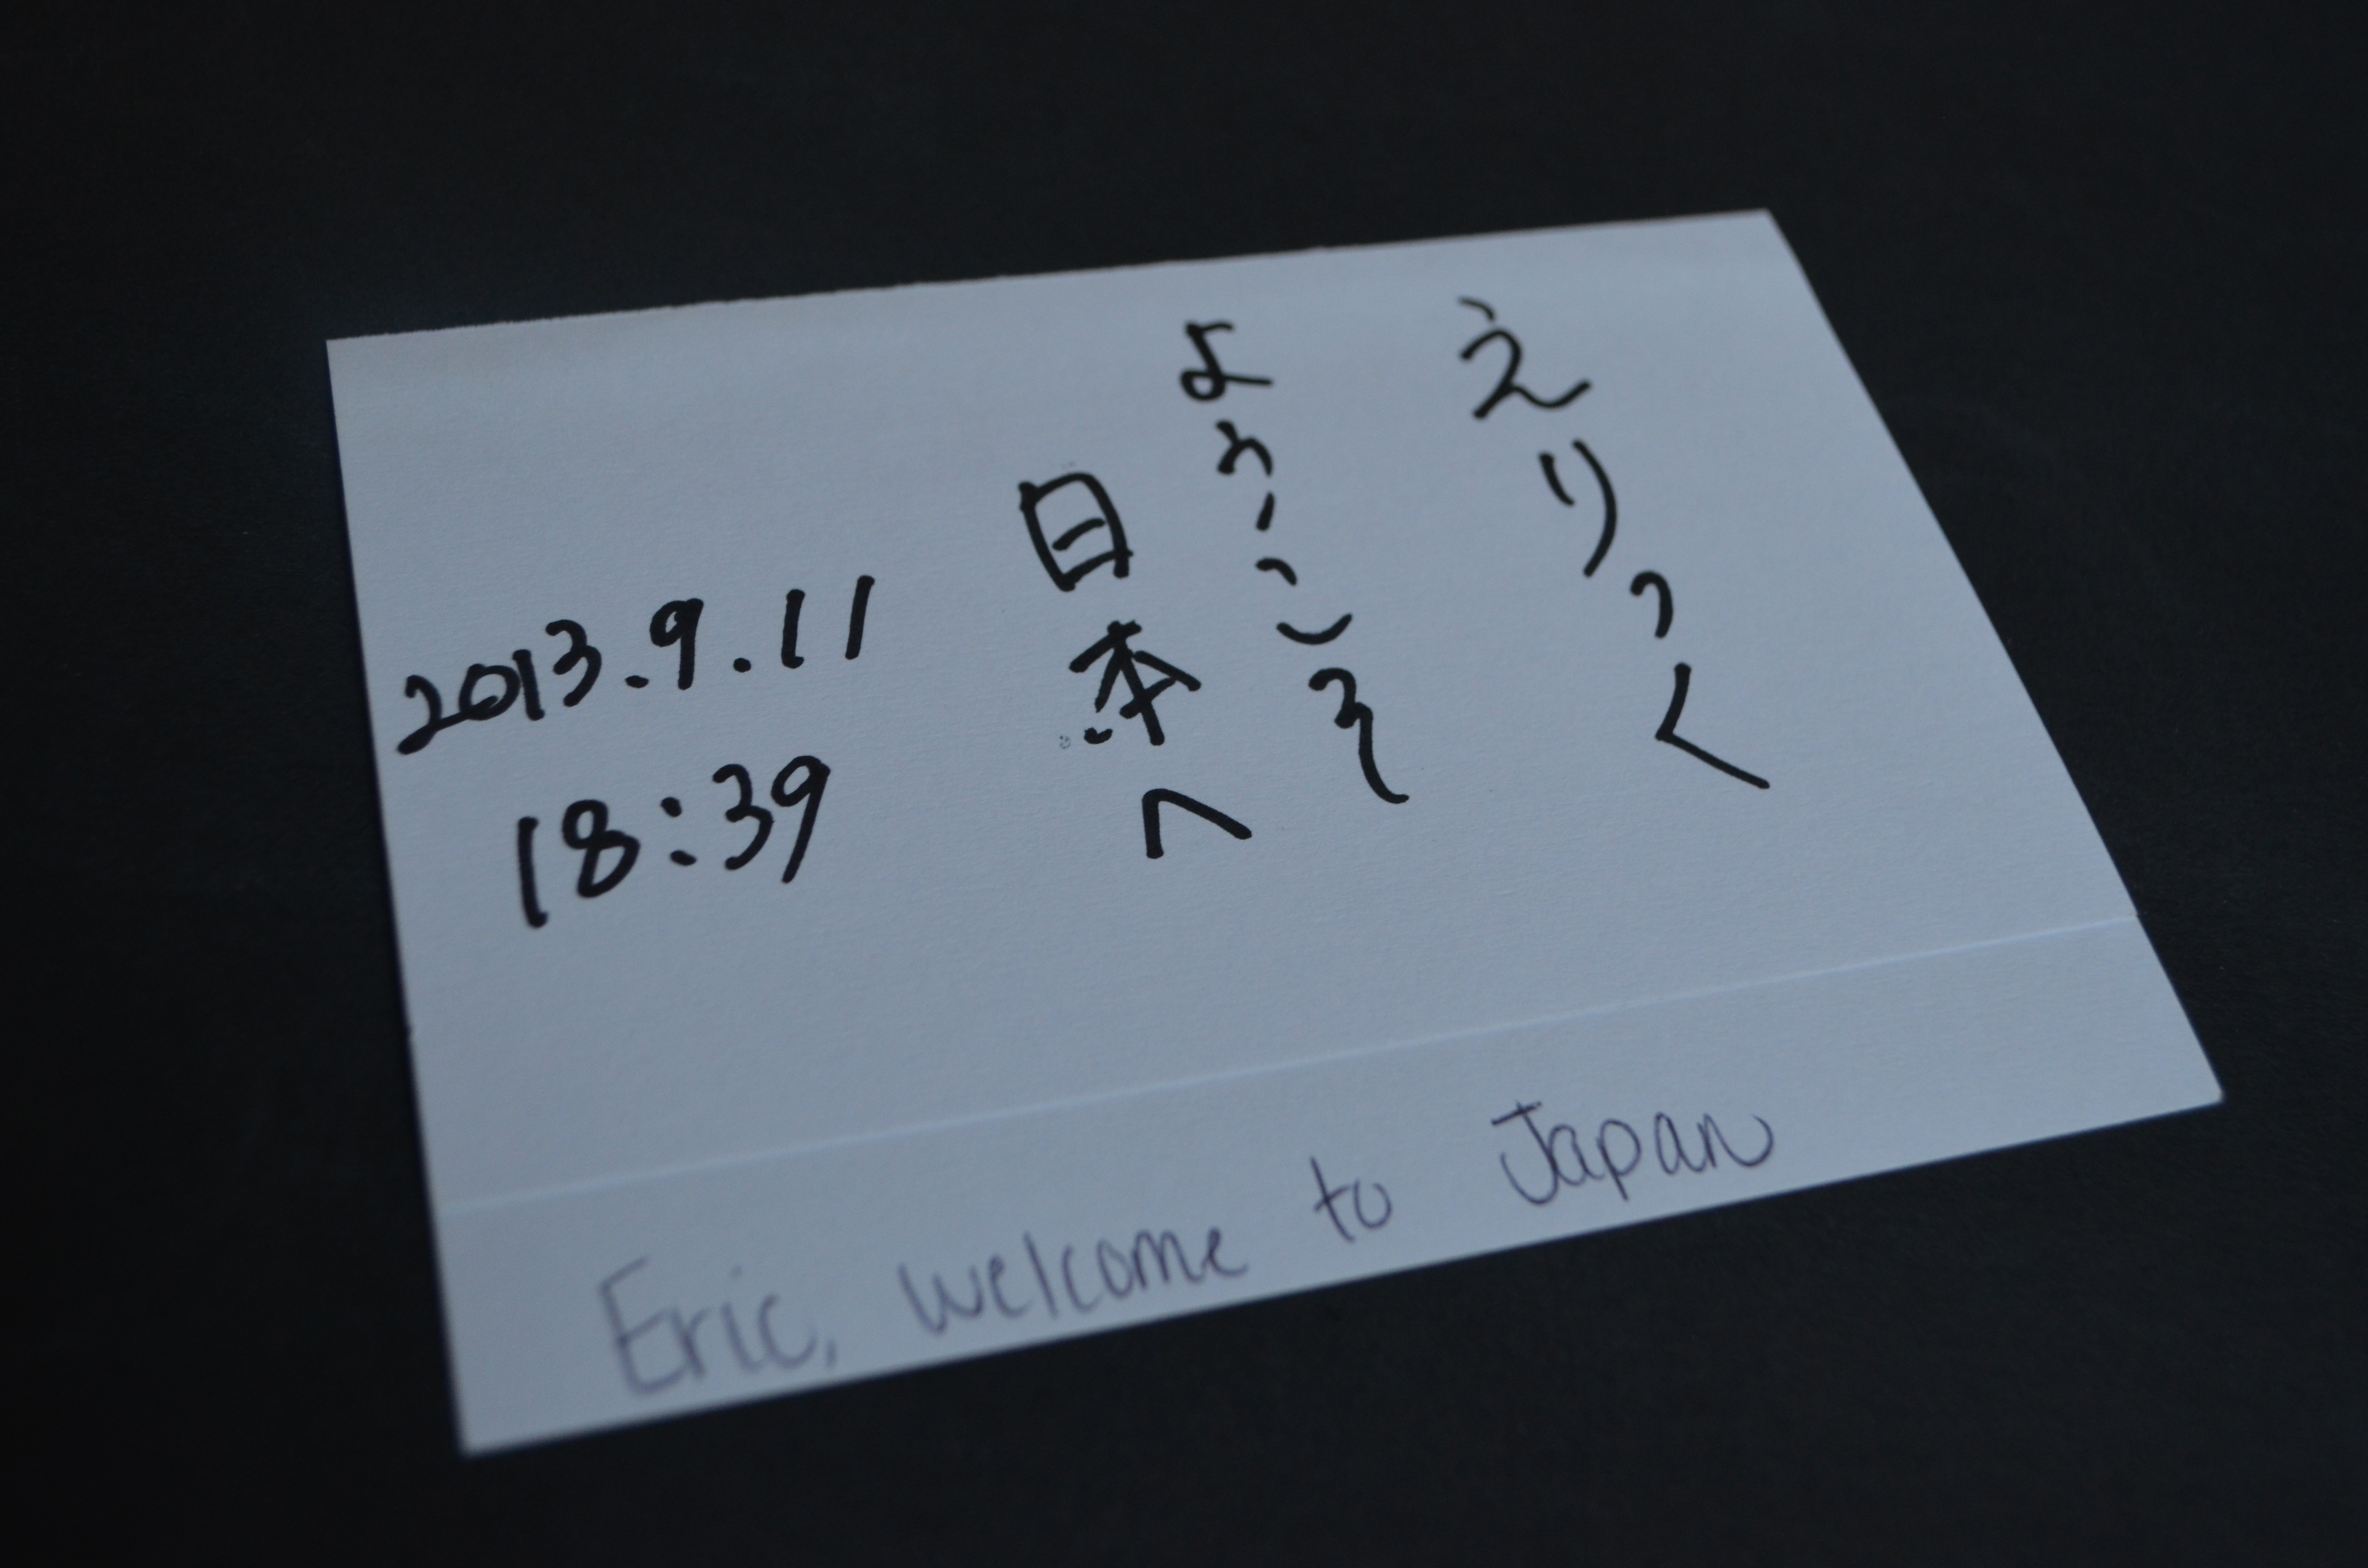 えりっく
ようこそ
日本へ
2013.9.11
18:39
Eric, welcome to Japan